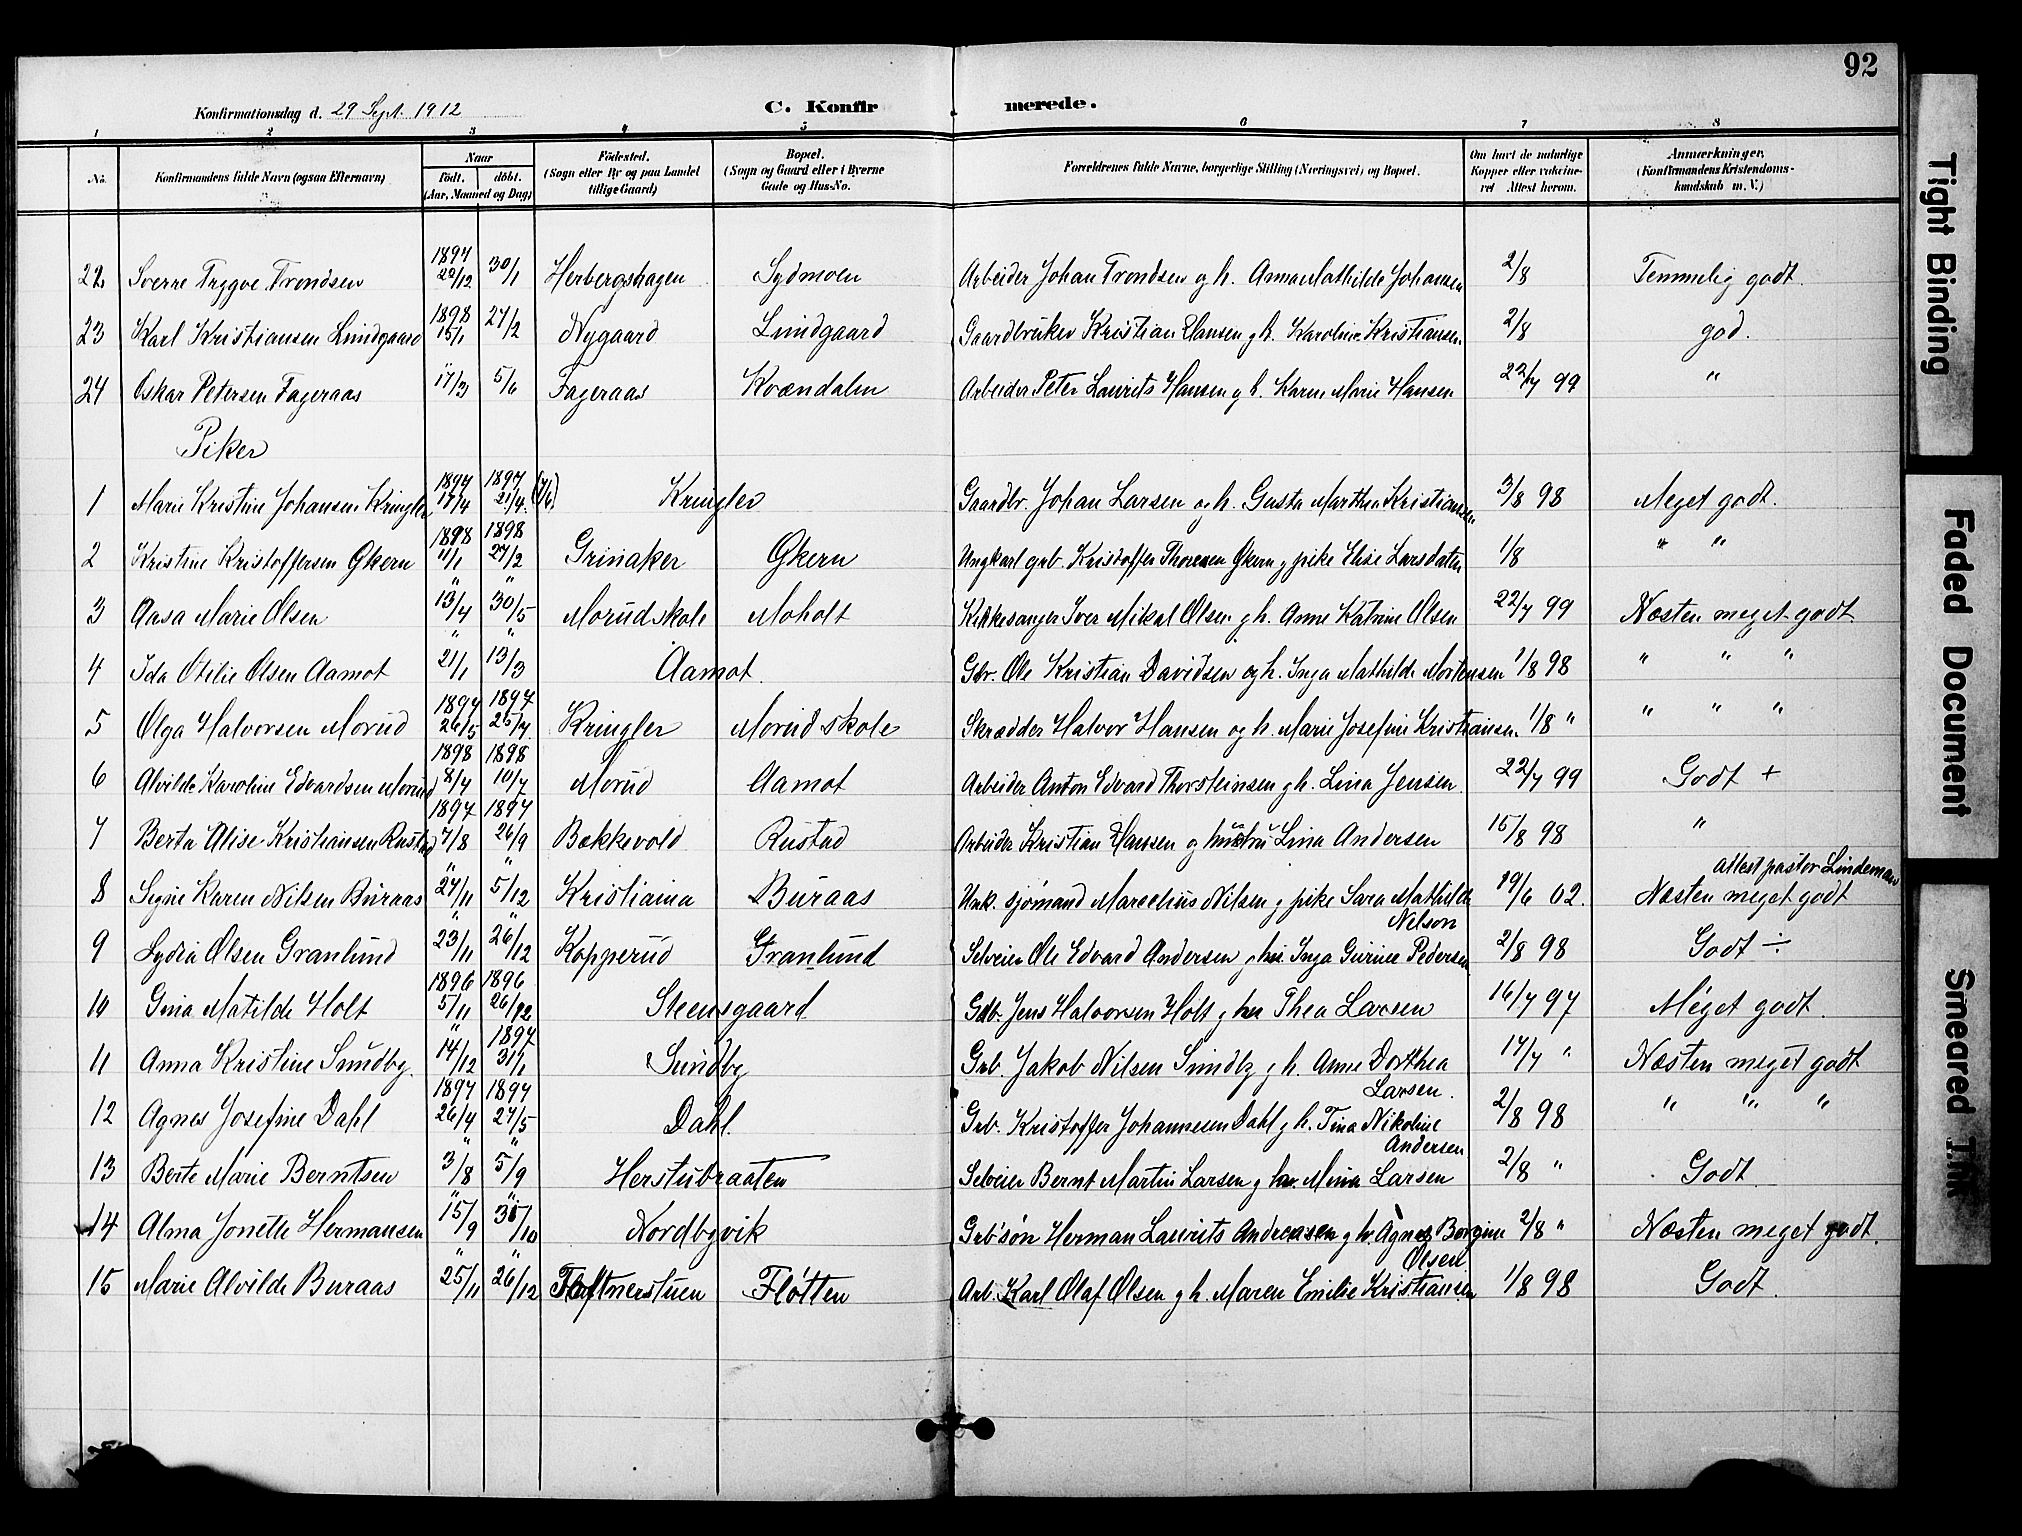 92
Konfirmationsdag d. 29 Sept. 1912 C. Konfirmerede.
1 2 3 4 5 6 7 8
No. Konfirmandens fulde Navn (ogsaa Efternavn) Naar Födt. döbt. (Aar, Maaned og Dag) Födested. (Sogn eller By og paa Landet tillige Gaard) Bopæl. (Sogn og Gaard eller i Byerne Gade og Hus-No. Forældrenes fulde Navne, borgerlige Stilling (Næringsvei) og Bopæl. Om havt de naturlige Kopper eller vakcineret Attest herom. Anmærkninger. (Konfirmandens Kristendomskundskab m. V.)
22 Sverre Trygve Trondsen 1897 22/12 30/1 Herbergshagen Sydmoen Arbeider Johan Trondsen og h. Anna Mathilde Johansen 2/8 Temmelig godt.
23 Karl Kristiansen Lundgaard 1898 15/1 27/2 Nygaard Lundgaard Gaardbruker Kristian Hansen g h. Karoline Kristiansen 2/8 god.
24 Oskar Petersen Fageraas " 17/3 5/6 Fageraas Kvændalen Arbeider Peter Laurits Hansen g h. Karen Marie Hansen 22/7 99 "
Piker
1 Marie Kristine Johansen Kringler 1897 17/4 1897 21/4. Kringler Gaardbr. Johan Larsen og h. Gusta Marthea Kristiansen 3/8 98 Meget godt.
2 Kristine Kristoffersen Gkern 1898 11/1 1898 27/2 Grinaker Gkern Ungkarl grb. Kristoffer Thoresen Gkern g pike Elise Larsdatter 1/8 " "
3 Aasa Marie Olsen " 13/4 " 30/5 Morudskole Moholt Kirkesanger Iver Mikal Olsen g h. Anne Katrine Olsen 22/7 99 Næsten meget godt
4 Ida Otilie Olsen Aamot " 21/1 " 13/3 Aamot. Gbr. Ole Kristian Davidsen og h. Inga Mathilde Mortensen 1/8 98 " " "
5 Olga Halvorsen Morud 1897 26/5 1897 25/7 Kringler Morud skole Skrædder Halvor Hansen og h. Marie Josefine Kristiansen. 1/8 " " " "
6 Alvilde Karoline Edvardsen Morud 1898 8/4 1898 10/7 Morud Aamot Arbeider Anton Edvard Thorsteinsen g h. Lina Jensen 22/7 99 Godt +
7 Berta Elise Kristiansen Rustad 1897 7/8 1897 26/9 Bækkevold Rustad Arbeider Kristian Hansen g hustru Lina Andersen 15/8 98 "
8 Signe Karen Nilsen Buraas " 27/11 " 5/12 Kristiania Buraas Unk. sjømand Marcelius Nilsen g pike Sara Mathilde Nelson 19/6 02. Attest pastor Lindeman Næsten meget godt
9 Lydia Olsen Granlund " 23/11 " 26/12 Kopperud Granlund Selveier Ole Edvard Andersen g hu. Inga Gurine Pedersen 2/8 98 Godt ÷
10 Gina Matilde Holt 1896 5/11 1896 26/12 Steensgaard Gdb. Jens Halvorsen Holt g hu Thea Larsen 16/7 97 Meget godt.
11 Anna Kristine Sundby. " 14/12 1897 31/1 Sundby Grb. Jakob Nilsen Sundby g h. Anne Dorthea Larsen. 17/7 " Næsten meget godt
12 Agnes Josefine Dahl 1897 26/4 1897 27/5 Dahl. Grb. Kristoffer Johannesen Dahl g h. Tina Nikoline Andersen 2/8 98 " " "
13 Berte Marie Berntsen " 3/8 " 5/9 Herstubraaten Selveier Bernt Martin Larsen g hu. Mina Larsen 2/8 " Godt.
14 Alma Jonette Hermansen " 15/9 " 31/10 Nordbyvik Grb'søn Herman Laurits Andreasen g h. Agnes Borgine Olsen 2/8 " Næsten meget godt.
15 Marie Alvilde Buraas " 25/11 " 26/12 Fløtnerstuen Fløtten Arb. Karl Olaf Olsen g h. Maren Emilie Kristiansen 1/8 98 Godt.
Tight Binding
Faded Document
Smeared Ink